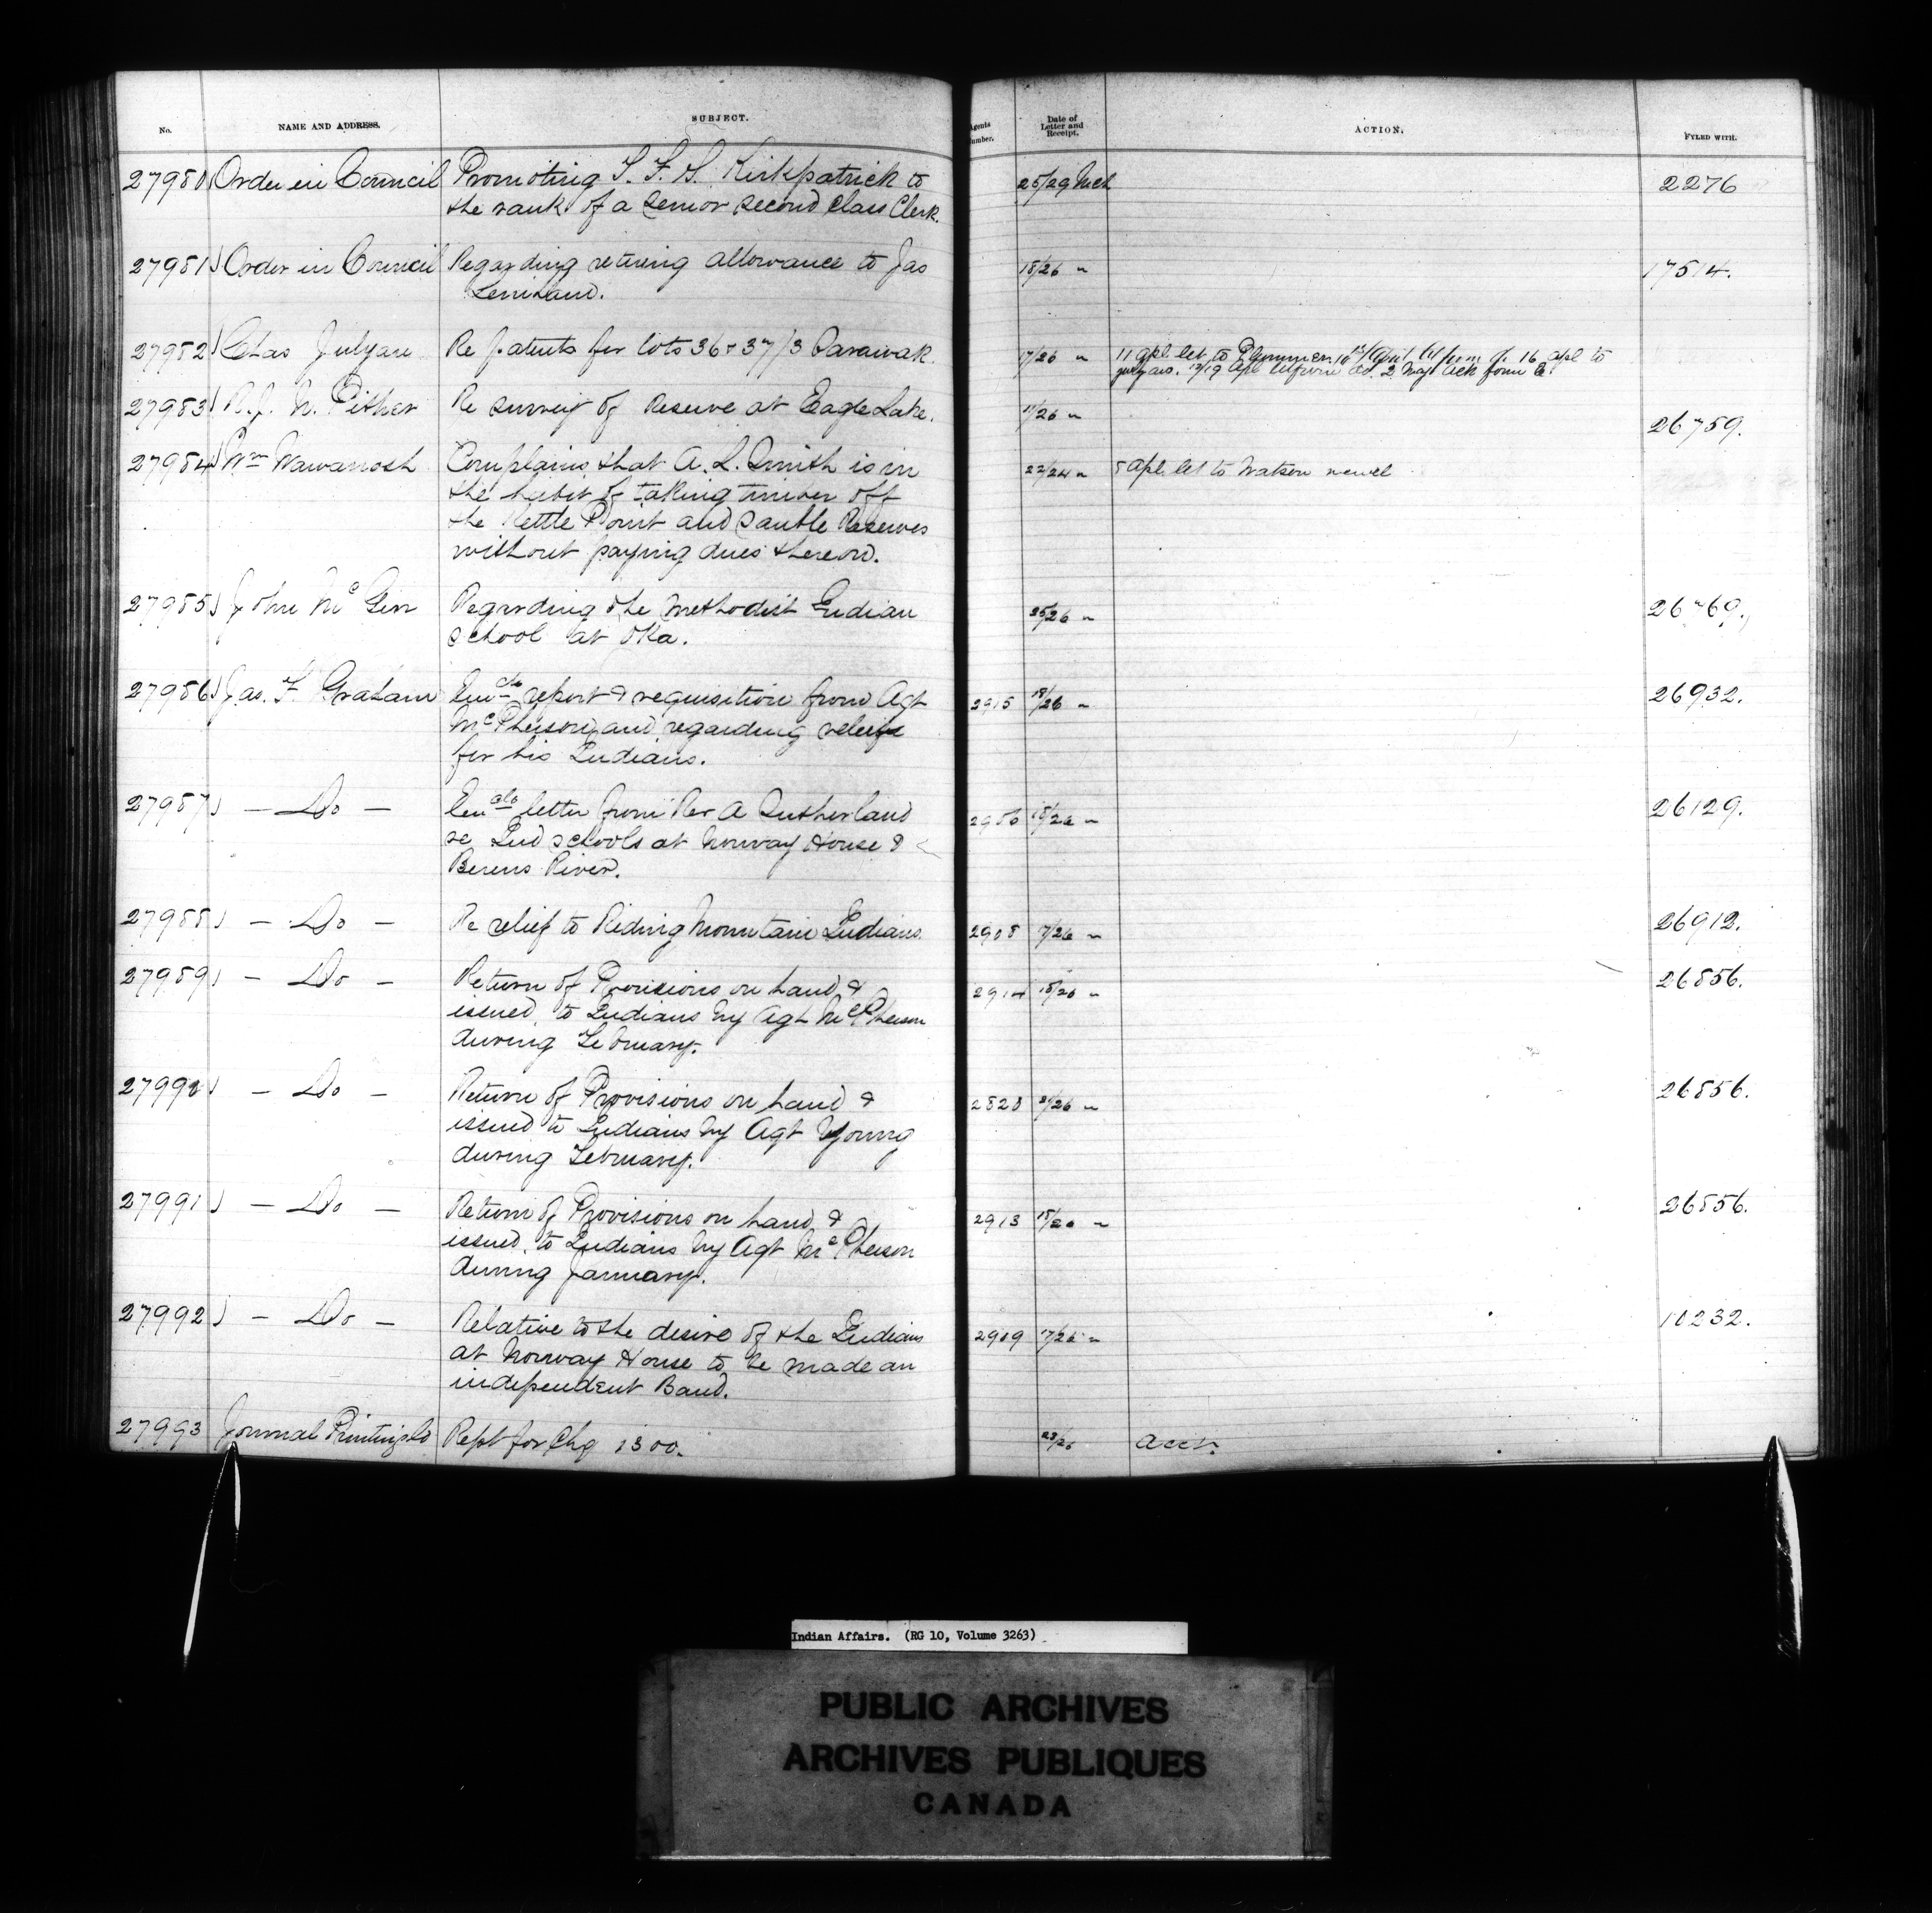 No.
NAME AND ADDRESS.
SUBJECT.
Agents Number.
Date of Letter and Receipt.
ACTION.
FYLED WITH.
27980 Order in Council Promoting S. F. S. Kirkpatrick to 25/29 Mch 2276
the rank of a Senior Second Class Clerk.
27981 Order in Council Regarding retiring allowance to Jas 18/26 " 17514.
27982 Chas Julyan Re patents for lots 36 & 37/3 Sarawak 17/26 " 11 Apl. let to Plummer 16 Apl to
27983 R. J. N. Pither Re survey of Reserve at Eagle Lake. 11/26 " 26759.
27984 Wm Wawanosh Complains that A. L. Smith is in 22/24 " 5 Apl. let to Watson
the habit of taking timber off
the Kettle Point and Sauble Reserves
without paying dues thereon.
27985 John McGirr Regarding the Methodist Indian 25/26 " 26769.
School at Oka.
27986 Jas. F. Graham Enclo report & requisition from Agt 2915 18/26 " 26932.
McPherson and regarding relief
for his Indians.
27987 — Do — Enclo letter from Rev A Sutherland 18/26 " 26129.
re Ind schools at Norway House &
Berens River.
27988 — Do — Re relief to Riding Mountain Indians 2908 17/26 " 26912.
27989 — Do — Return of Provisions on hand & 2914 18/26 " 26856.
issued to Indians by Agt McPherson
during February.
27990 — Do — Return of Provisions on hand & 2820 26856.
issued to Indians by Agt Young
during February.
27991 — Do — Return of Provisions on hand & 2913 18/26 " 26856.
issued to Indians by Agt McPherson
during January.
27992 — Do — Relative to the desire of the Indians 2909 17/26 " 10232.
at Norway House to be made an
independent Band.
27993 Journal Printing Co Rept for Chq 1300. 23/26 Acct.
Indian Affairs. (RG 10, Volume 3263)
PUBLIC ARCHIVES
ARCHIVES PUBLIQUES
CANADA